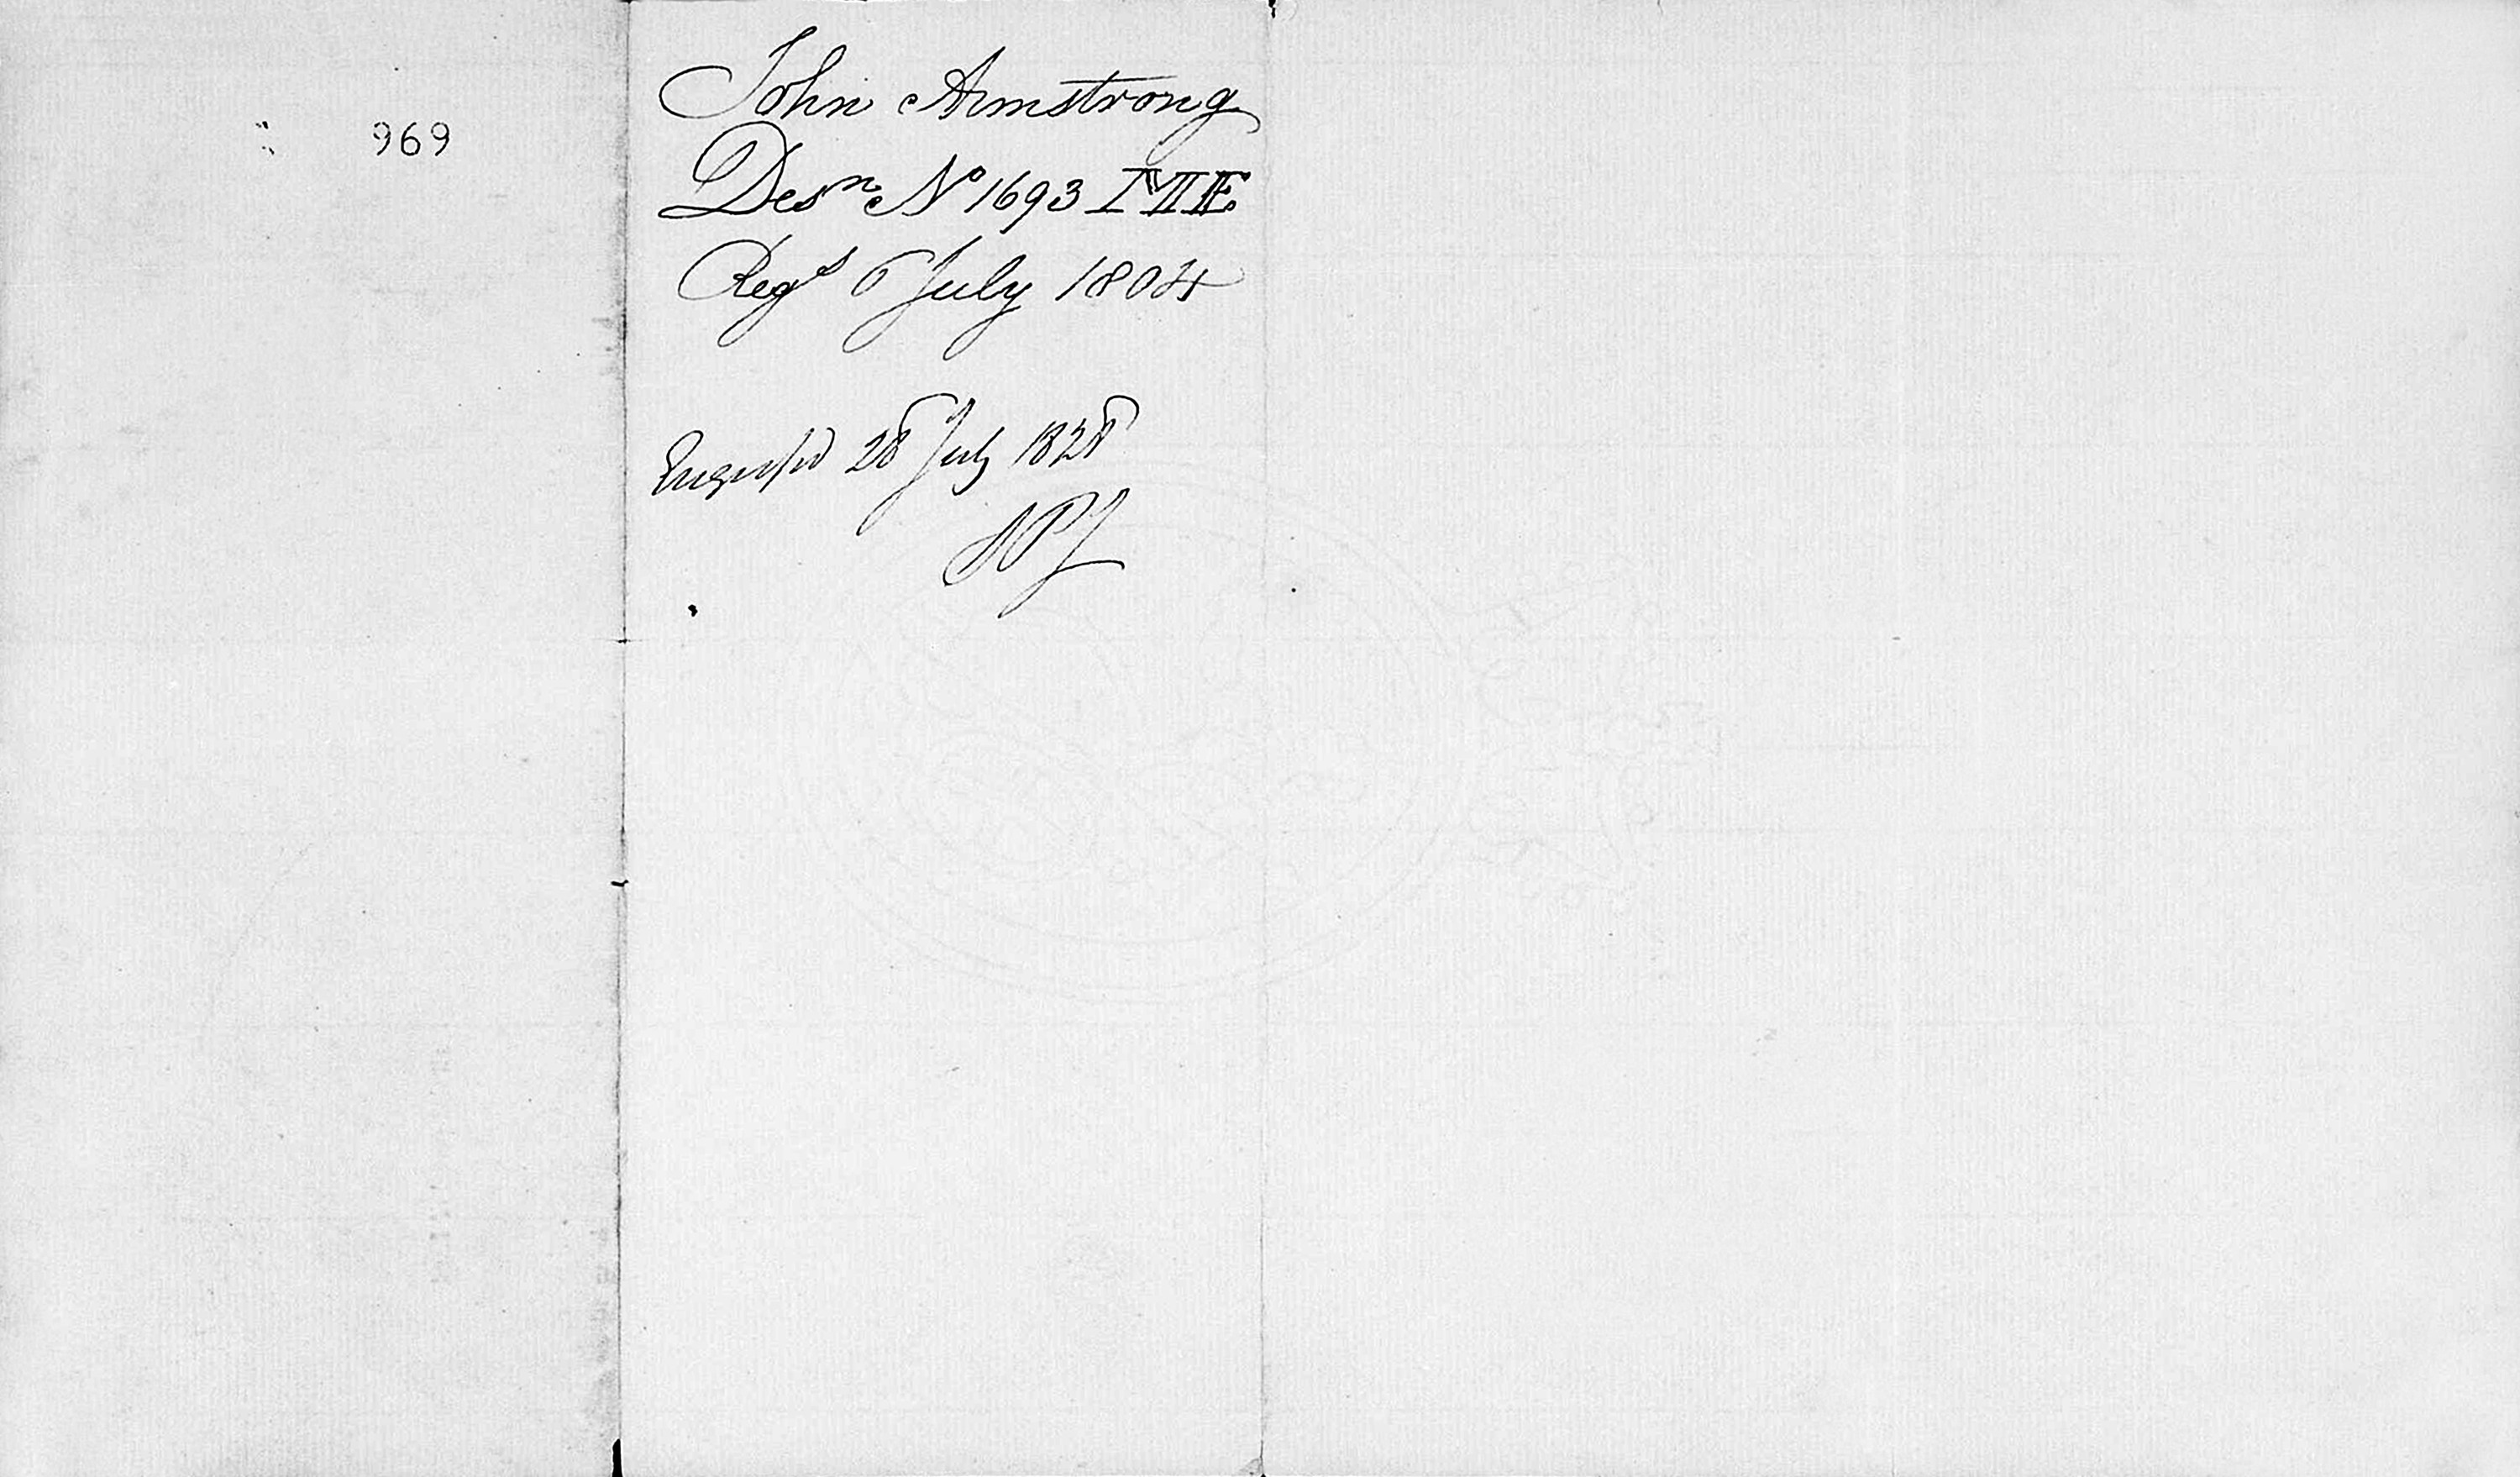 969
John Armstrong
Desn No 1693
Regd 6 July 1804
28 July 1828